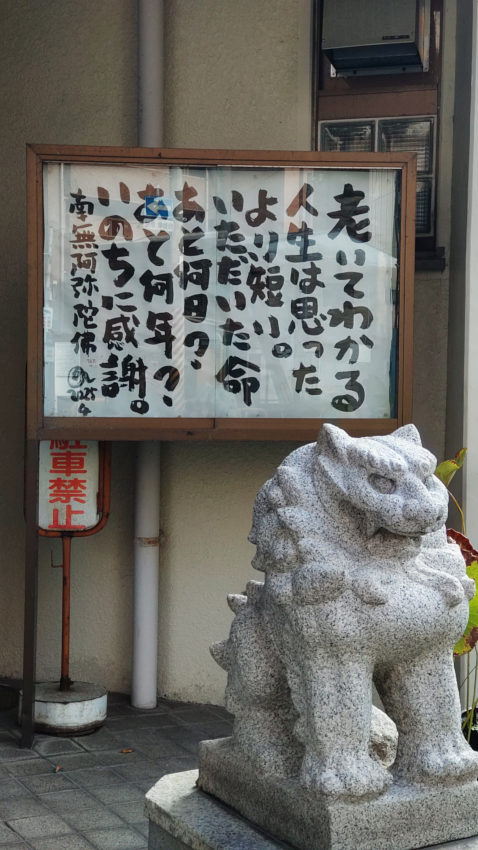 老いてわかる
人生は思った
より短い。
いただいた命
あと何日?
あと何年?
いのちに感謝。
南無阿弥陀佛
2025
4
駐車禁止